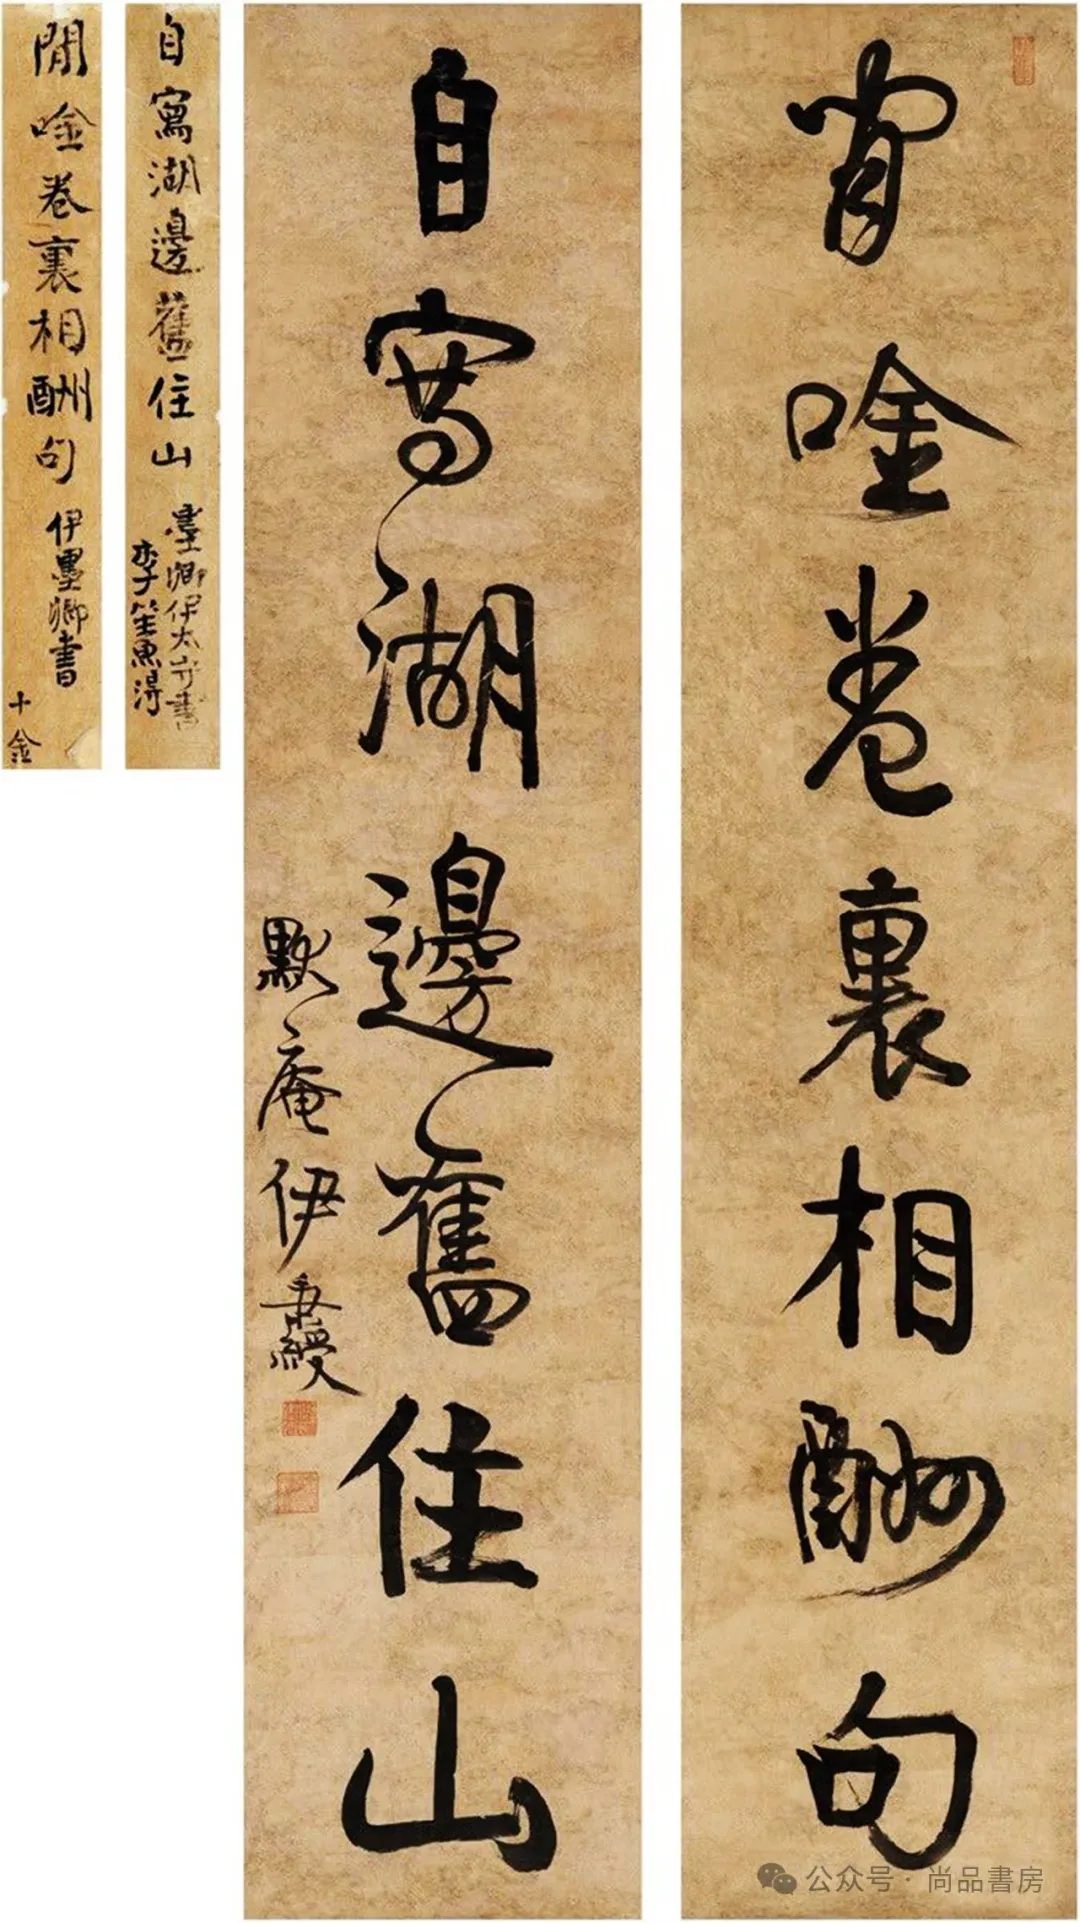 閒唫卷裏相酬句
自寫湖邊舊住山
默庵伊秉綬
自寫湖邊舊住山
墨卿伊太守書
李笙魚得
閒唫卷裏相酬句
伊墨卿書
十金
公众号 · 尚品書房